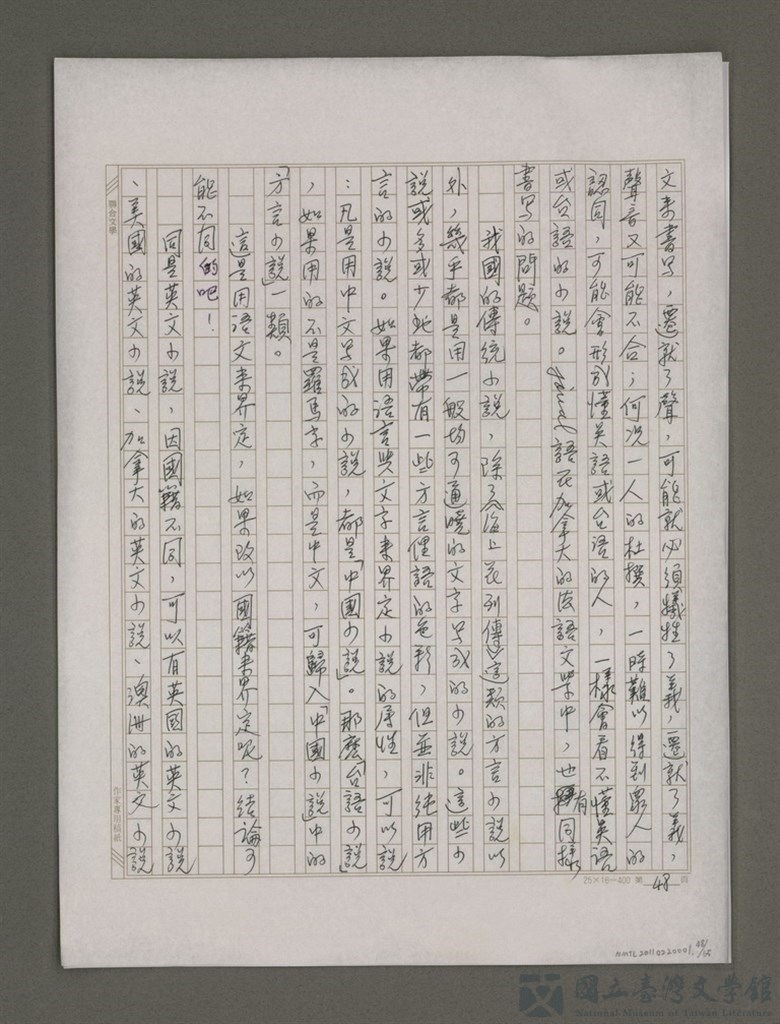 文来書写，遷就了聲，可能就必須犧牲了義，遷就了義，
聲音又可能不合；何况一人的杜撰，一時難以得到眾人的
認同，可能會形成懂吴語或台語的人，一樣會看不懂吴語
或台語的小説。語在加拿大的法語文學中，也有同樣
書写的問題。
我國的傳統小説，除了《海上花列傳》這類的方言小説以
外，幾乎都是用一般均可通曉的文字写成的小説。這些小
説或多或少地都帶有一些方言俚語的色彩，但並非純用方
言的小説。如果用語言與文字来界定小説的屬性，可以説
：凡是用中文写成的小説，都是「中國小説」。那麽「台語小説」
，如果用的不是羅馬字，而是中文，可歸入「中國小説」中的
「方言小説」一類。
這是用語文来界定，如果改以國籍来界定呢？結論可
能不同的吧！
同是英文小説，因國籍不同，可以有英国的英文小説
、美國的英文小説、加拿大的英文小説、澳洲的英文小説
聯合文學
作家專用稿紙
25×16=400 第 48 頁
NMTL20110220001
國立臺灣文學館
National Museum of Taiwan Literature